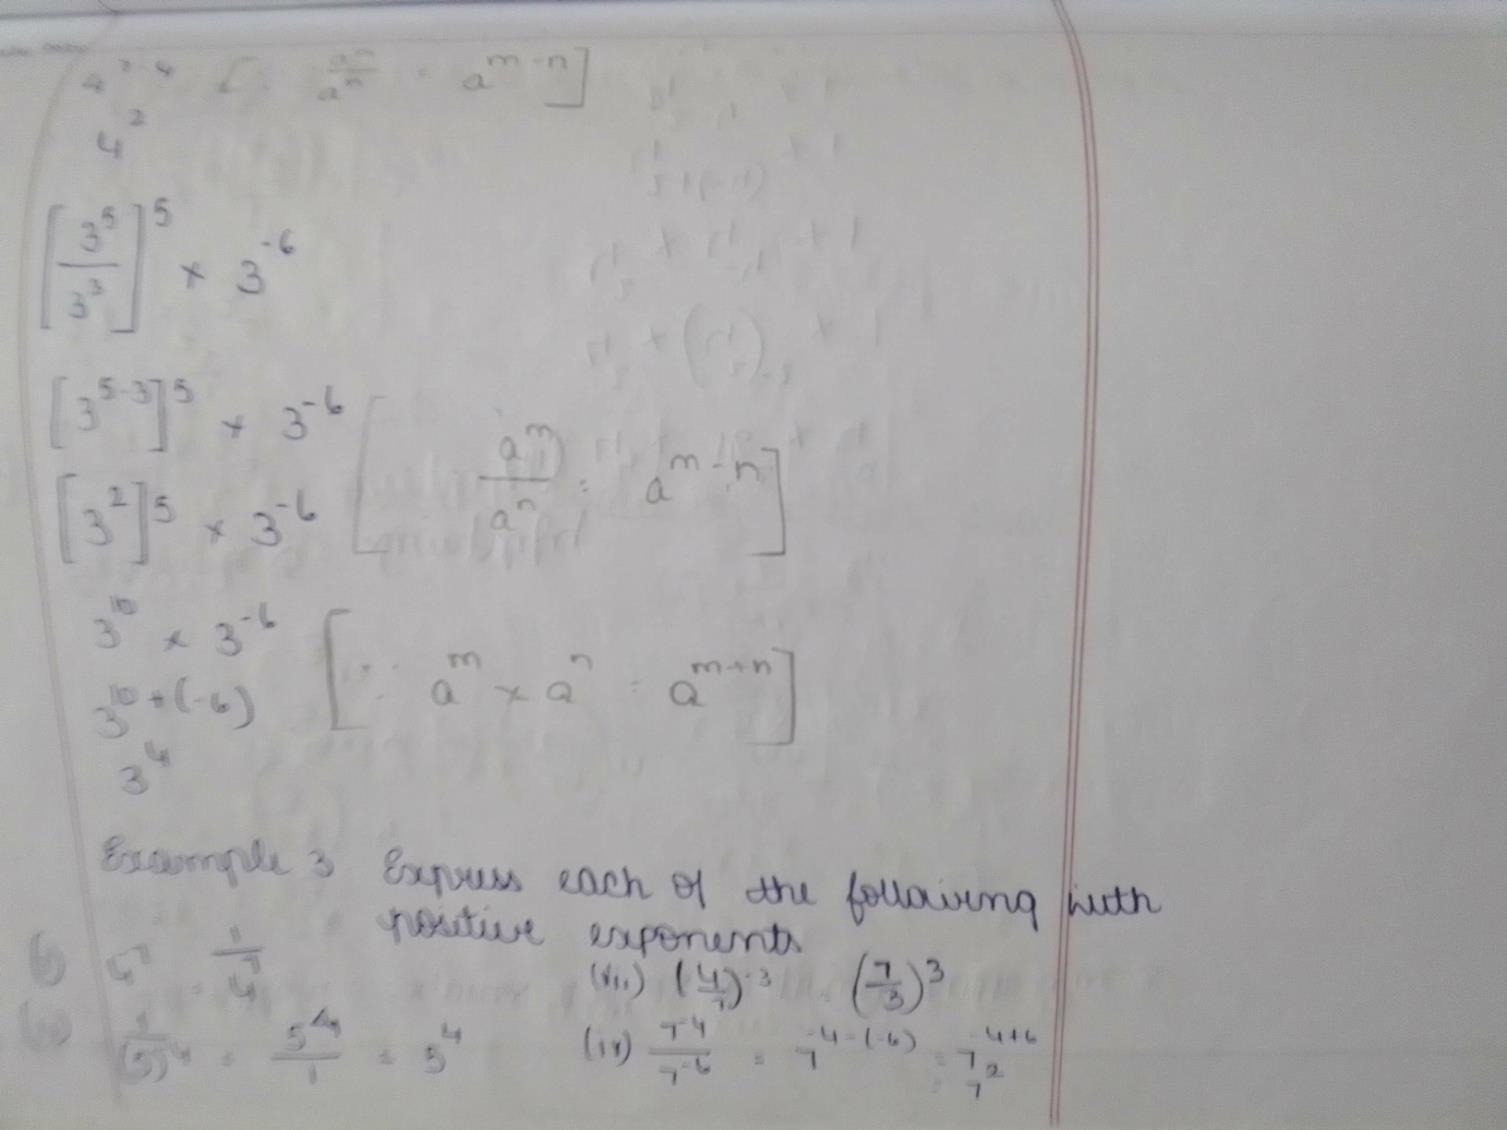 4² [∵ aᵐ/aⁿ = aᵐ⁻ⁿ]
4²
[3⁵/3³]⁵ × 3⁻⁶
[3⁵⁻³]⁵ × 3⁻⁶
[3²]⁵ × 3⁻⁶ [aᵐ/aⁿ = aᵐ⁻ⁿ]
3¹⁰ × 3⁻⁶
3¹⁰⁺⁽⁻⁶⁾ [∵ aᵐ × aⁿ = aᵐ⁺ⁿ]
3⁴
Example 3 Express each of the following with
positive exponents
(iii) (4/7)⁻³ = (7/3)³
= 5⁴/1 = 5⁴ (iv) 7⁻⁴/7⁻⁶ = 7⁻⁴⁻⁽⁻⁶⁾ = 7⁻⁴⁺⁶
= 7²